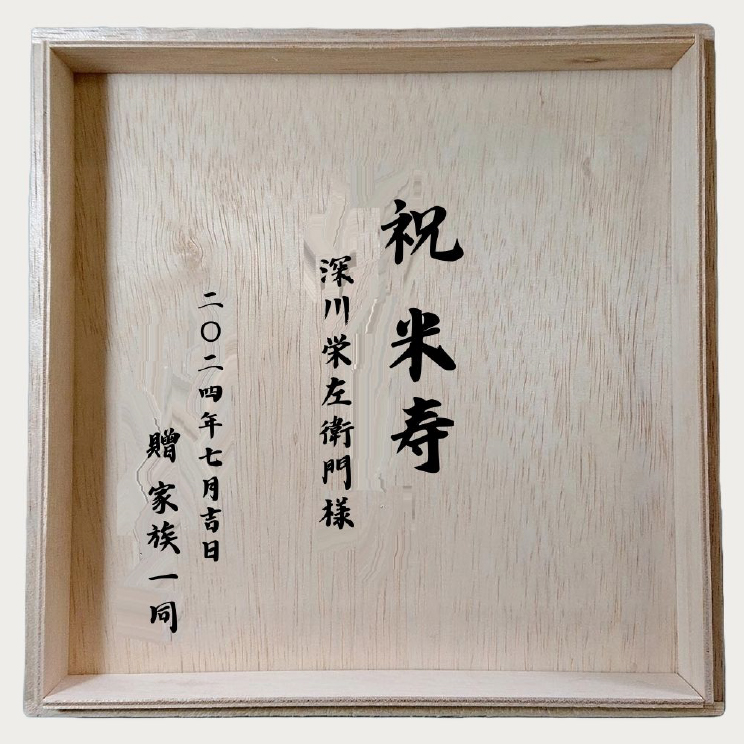 祝 米寿
深川栄左衛門様
二〇二四年七月吉日
贈 家族一同